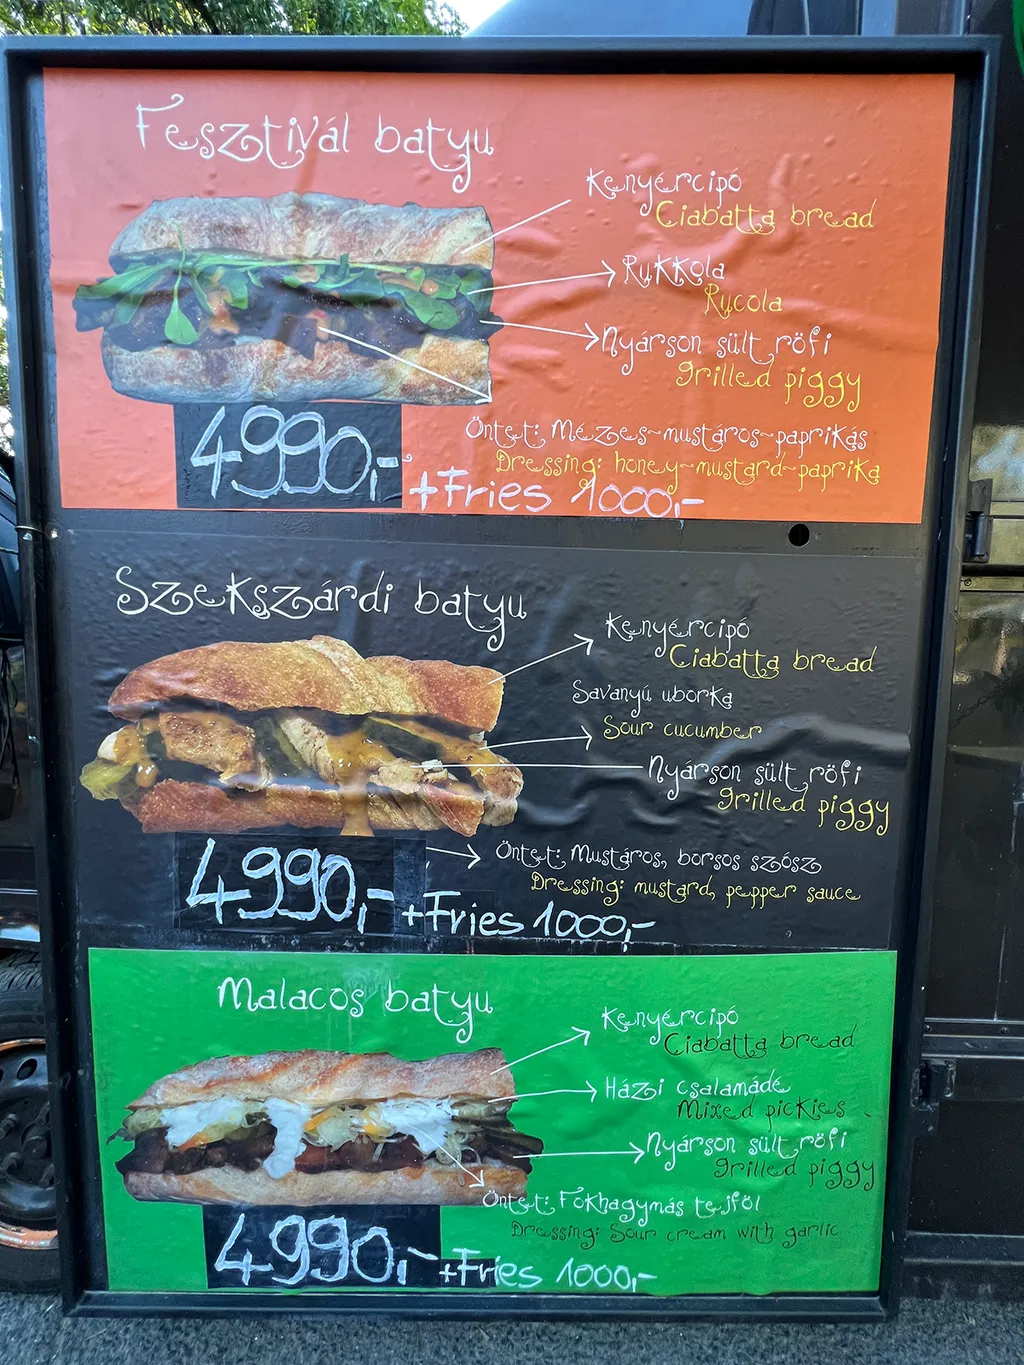 Fesztivál batyu
Kenyércipó
Ciabatta bread
Rukkola
Rucola
Nyárson sült röfi
grilled piggy
Öntet: Mézes-mustáros-paprikás
Dressing: honey-mustard-paprika
4990,-
+Fries 1000,-
Szekszárdi batyu
Kenyércipó
Ciabatta bread
Savanyú uborka
Sour cucumber
Nyárson sült röfi
grilled piggy
Öntet: Mustáros, borsos szósz
Dressing: mustard, pepper sauce
4990,-
+Fries 1000,-
Malacos batyu
Kenyércipó
Ciabatta bread
Házi csalamádé
Mixed pickies
Nyárson sült röfi
grilled piggy
Öntet: Fokhagymás tejföl
Dressing: Sour cream with garlic
4990,-
+Fries 1000,-